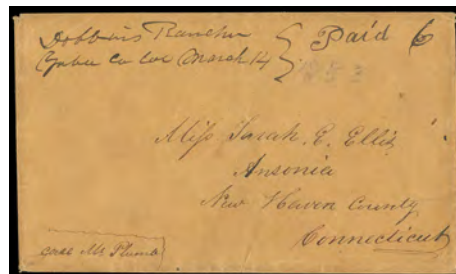 Dobbins Ranche } Paid 6
Yuba Co Cal March 14
Miss Sarah. E. Ellis
Ansonia
New Haven County
Connecticut
care Mr Plumb